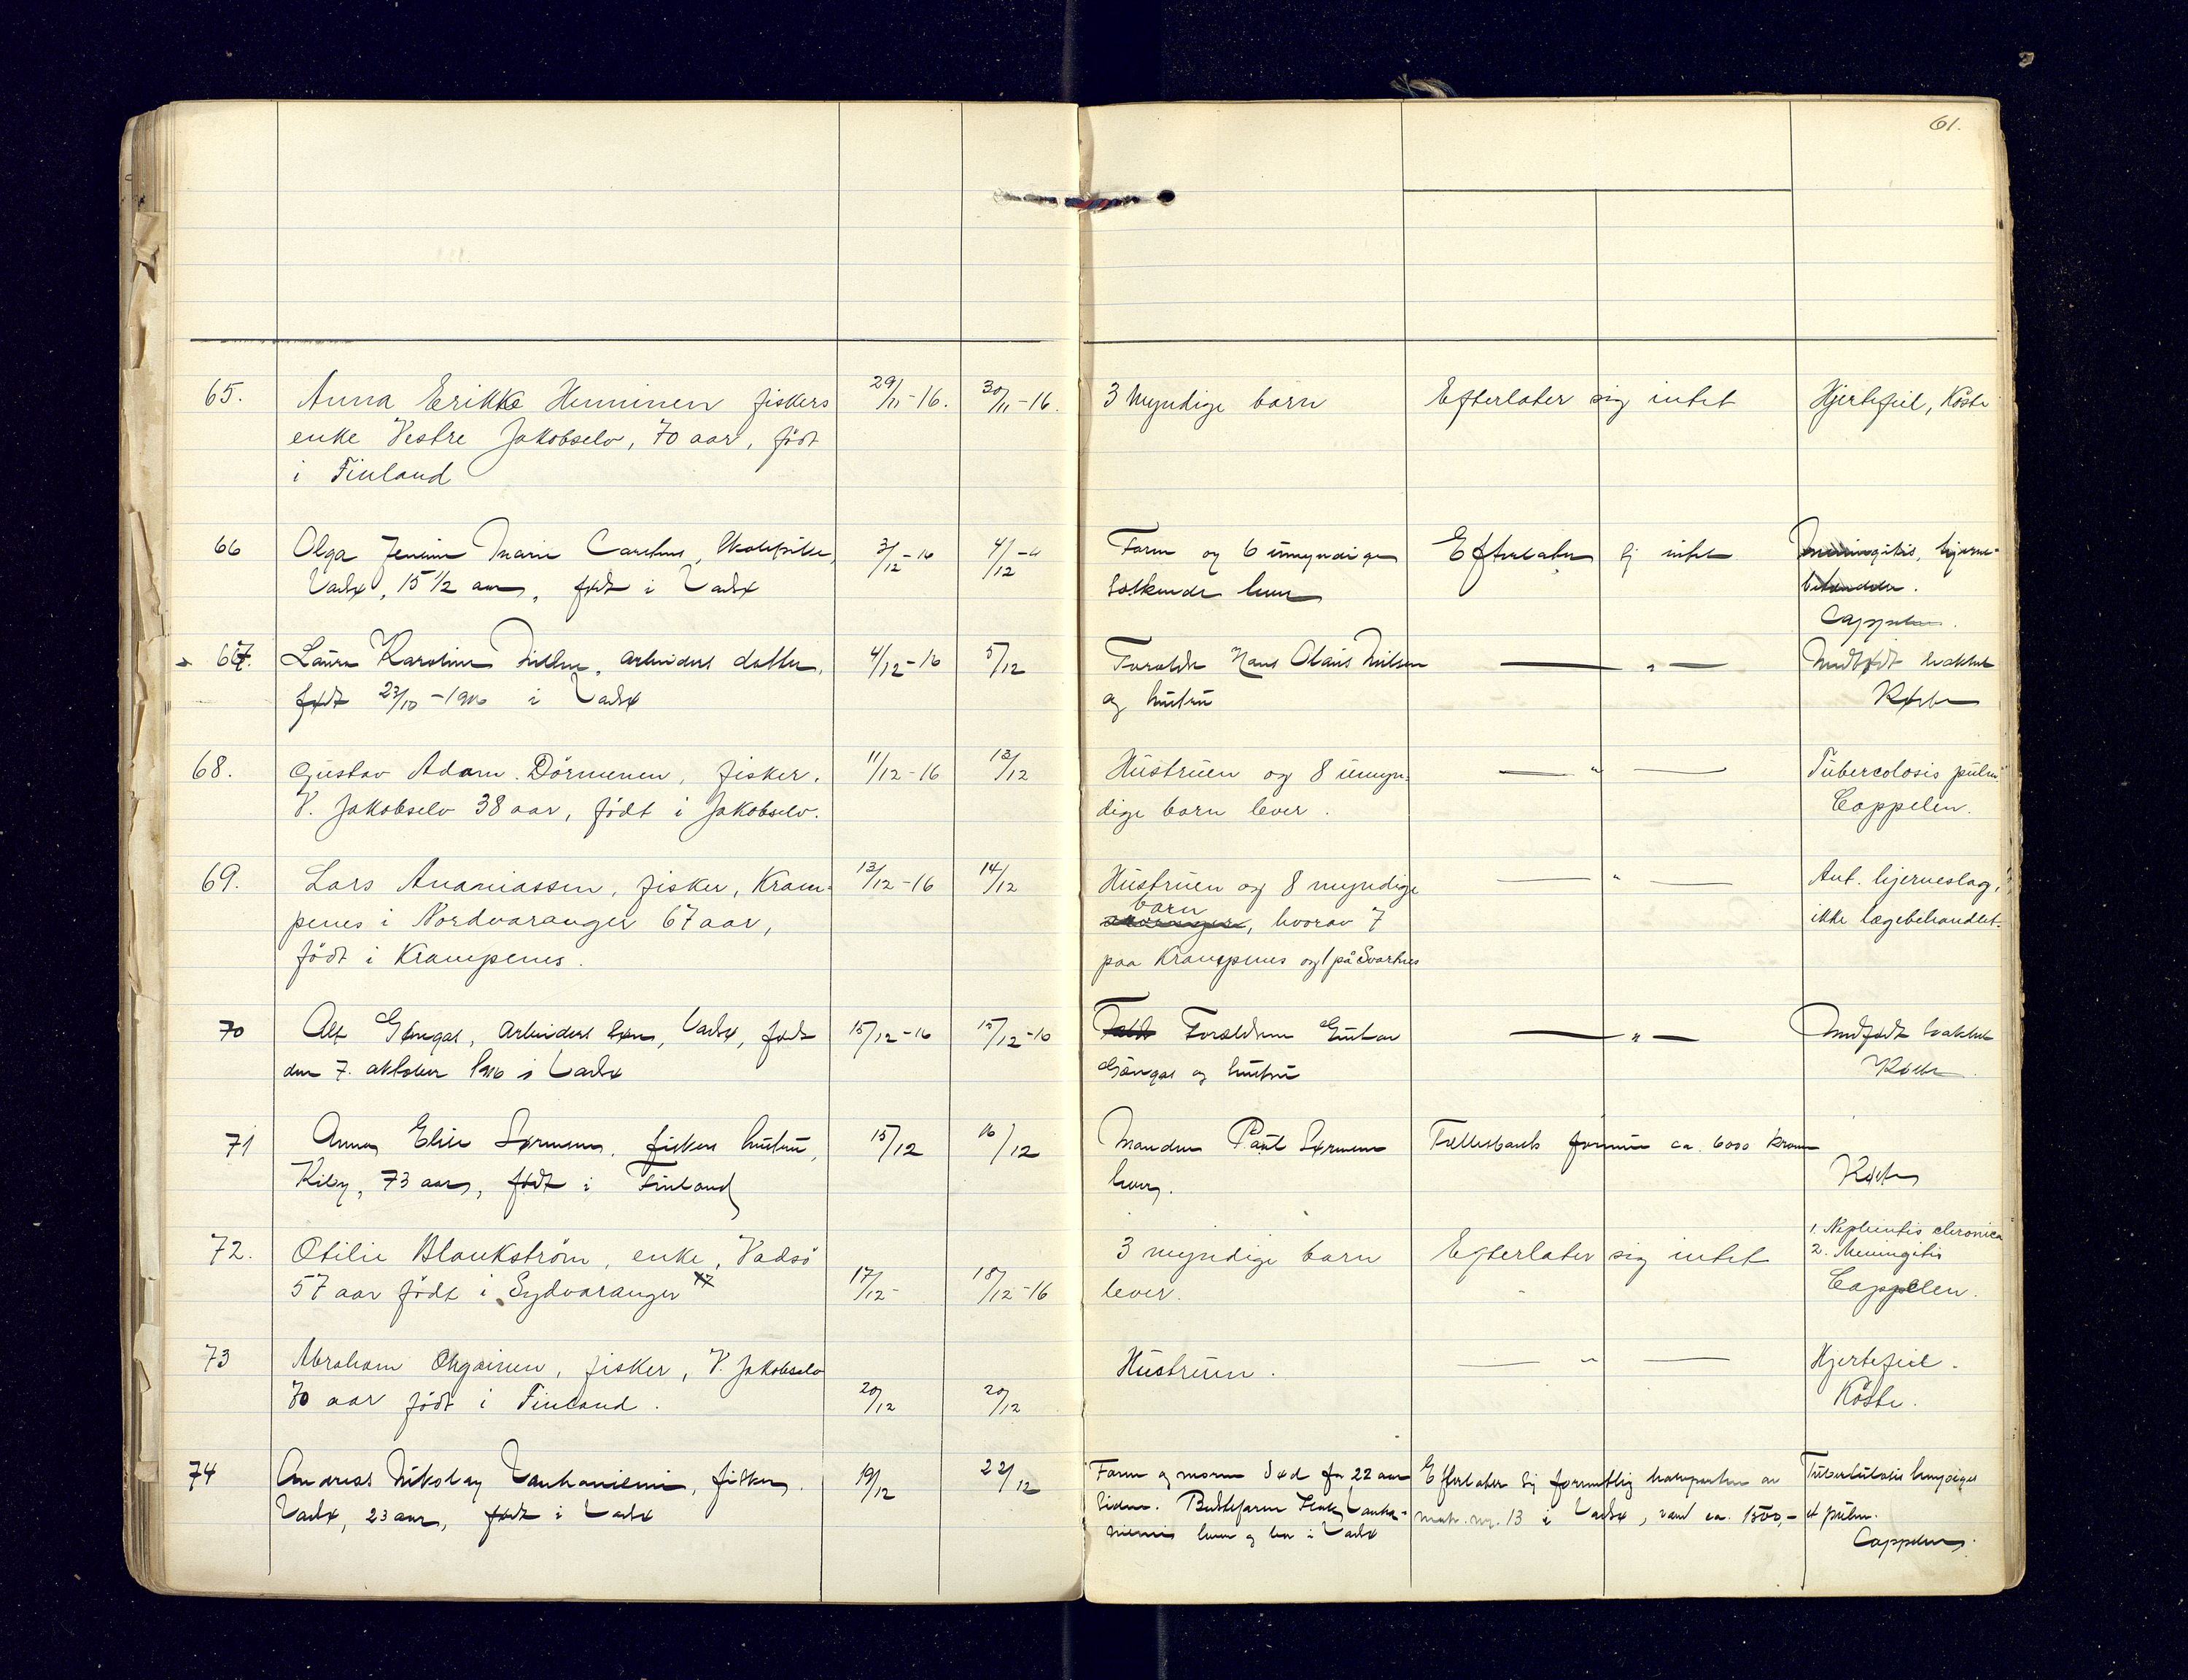 61.
65. Anna Erikke Henninen fiskers 29/11-16. 30/11-16. 3 myndige barn Efterlater sig intet Hjertefeil, Köste
enke Vestre Jakobselv, 70 aar, født
i Finland
66 Olga Marie Vadsø, 3/12-16 4/12 Faren og 6 umyndige Efterlater sig intet Meningitis, hjerne-
Vadsø, 15 1/2 aar, født i Vadsø søskende lever
Cappelen.
67. Laura Karoline Nilsen, arbeiders datter, 4/12-16 5/12 Forældre Hans Olaus Nilsen — „ — Medfødt svakhet
født 23/10-1916 i Vadsø og hustru Køste
68. Gustav Adam Dörmenen, fisker, 11/12-16 13/12 Hustruen og 8 umyn- — „ — Tubercolosis pulm.
V. Jakobselv 38 aar, födt i Jakobselv. dige barn lever. Cappelen.
69. Lars Ananiassen, fisker, Kram- 13/12-16 14/12 Hustruen og 8 myndige — „ — Ant. hjerneslag,
penes i Nordvaranger 67 aar, barn, hvorav 7 ikke lægebehandlet.
födt i Krampenes. paa Krampenes og 1 på Svartnes
70 Alf Gjængas, arbeiders søn, Vadsø, født 15/12-16 15/12-16 Forældrene Einar — „ — Medfødt svakhet
den 7. oktober 1916 i Vadsø Gjængas og hustru Køste
71 Anna Elise Sørmenen, fiskers hustru, 15/12 16/12 Manden Paul Sørmenen Fællesboets formue ca. 6000 kroner
Kiby, 73 aar, født i Finland lever. Køste
72. Otilie Blankström, enke, Vadsö 3 myndige barn Efterlater sig intet 1. Nephritis chronica
2. Meningitis
57 aar födt i Sydvaranger 17/12- 18/12-16 lever. Cappelen.
73 Abraham Ohgainen, fisker, V. Jakobselv Hustruen. — „ — Hjertefeil.
70 aar födt i Finland. 20/12 20/12 Köste.
74 Andreas Nikolay Vanhaniemi, fisker, 19/12 22/12 Faren og moren død for 22 aar Efterlater sig formentlig halvparten av Tuberkulosis laryngis
Vadsø, 23 aar, født i Vadsø siden. Bestefaren Isak Vanha- matr. nr. 13 i Vadsø, værd ca. 1500,- et pulm.
niemi lever og bor i Vadsø Cappelen.